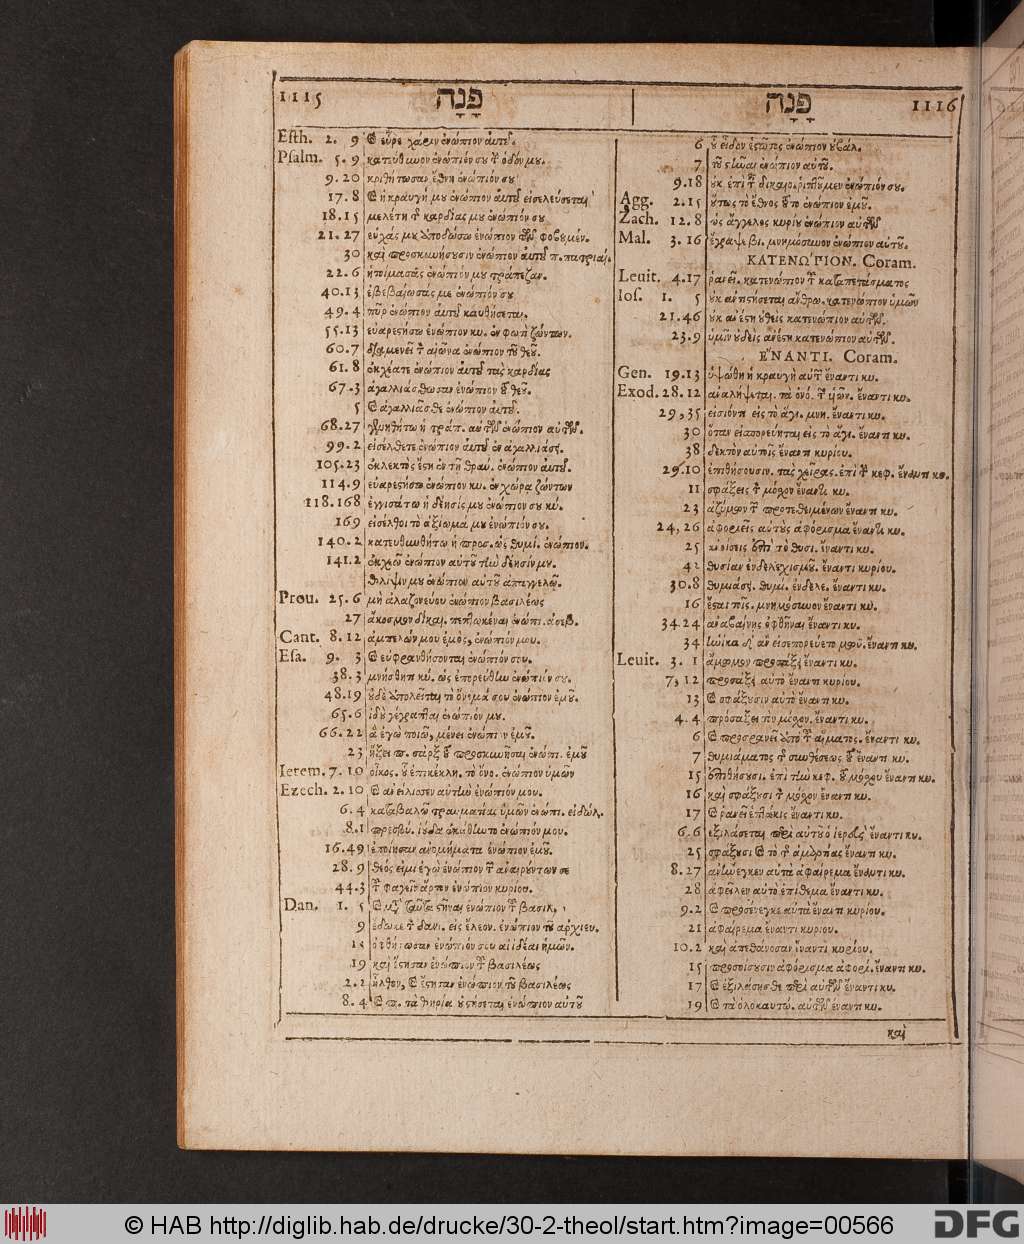 1115 פָּנָה
Esth. 2. 9 καὶ εὗρε χάριν ἐνώπιον αὐτοῦ.
Psalm. 5. 9 κατεύθυνον ἐνώπιόν σου τ̀ ὁδόν μου.
9. 20 κριθήτωσαν ἔθνη ἐνώπιόν σου
17. 8 καὶ ἡ κραυγή μου ἐνώπιον αὐτοῦ εἰσελεύσεται
18. 15 μελέτη τ̂ καρδίας μου ἐνώπιόν σου
21. 27 εὐχάς μου ἀποδώσω ἐνώπιον τῶν φοβουμέν.
30 καὶ προσκυνήσουσιν ἐνώπιον αὐτοῦ π. πατριαί.
22. 6 ἡτοίμασάς ἐνώπιόν μου τράπεζαν.
40. 13 ἐβεβαίωσάς με ἐνώπιόν σου
49. 4 πῦρ ἐνώπιον αὐτοῦ καυθήσεται.
55. 13 εὐαρεστήσω ἐνώπιον κυ. ἐν φωτὶ ζώντων.
60. 7 διαμενεῖ τ̀ αἰῶνα ἐνώπιον τοῦ θεοῦ.
61. 8 ἐκχέατε ἐνώπιον αὐτοῦ τὰς καρδίας
67. 3 ἀγαλλιάσθωσαν ἐνώπιον τοῦ θεοῦ.
5 καὶ ἀγαλλιᾶσθε ἐνώπιον αὐτοῦ.
68. 27 γενηθήτω ἡ τράπ. αὐτῶν ἐνώπιον αὐτῶν.
99. 2 εἰσέλθετε ἐνώπιον αὐτοῦ ἐν ἀγαλλιάσ.
105. 23 ἐκλεκτὸς ἔστη ἐν τῇ θραύ. ἐνώπιον αὐτοῦ.
114. 9 εὐαρεστήσω ἐνώπιον κυ. ἐν χώρᾳ ζώντων
118. 168
169 εἰσέλθοι τὸ ἀξίωμά μου ἐνώπιόν σου.
140. 2 κατευθυνθήτω ἡ προσ. ὡς θυμί. ἐνώπιον.
141. 2 ἐκχεῶ ἐνώπιον αὐτοῦ τὴν δέησίν μου.
θλίψιν μου ἐνώπιον αὐτοῦ ἀπαγγελῶ.
Prou. 25. 6 μὴ ἀλαζονεύου ἐνώπιον βασιλέως
27 ἄκοσμον δίκαι. πεπτωκέναι ἐνώπι. ἀσεβ.
Cant. 8. 12 ἀμπελών μου ἐμὸς, ἐνώπιόν μου.
Esa. 9. 3 καὶ εὐφρανθήσονται ἐνώπιόν σου.
38. 3 μνήσθητι κύ. ὡς ἐπορεύθην ἐνώπιόν σου.
48. 19 οὐδὲ ἀπολεῖται τὸ ὄνομά σου ἐνώπιον ἐμοῦ.
65. 6 ἰδοὺ γέγραπται ἐνώπιόν μου.
66. 22 ἃ ἐγὼ ποιῶ, μένει ἐνώπιον ἐμοῦ.
23 ἥξει π. σὰρξ τοῦ προσκυνῆσαι ἐνώπι. ἐμοῦ
Ierem. 7. 10 οἶκος. οὗ ἐπικέκλη. τὸ ὄνο. ἐνώπιον ὑμῶν
Ezech. 2. 10 καὶ ἀνείλησεν αὐτὴν ἐνώπιόν μου.
6. 4 καταβαλῶ τραυματίας ὑμῶν ἐνώπι. εἰδώλ.
8. 1 πρεσβύ. ἰούδα ἐκάθηντο ἐνώπιόν μου.
16. 49 ἐποίησαν ἀνομήματα ἐνώπιον ἐμοῦ.
28. 9 θεός εἰμι ἐγὼ ἐνώπιον τ̂ ἀναιρούντων σε
44. 3 τ̂ φαγεῖν ἄρτον ἐνώπιον κυρίου.
Dan. 1. 5 καὶ μετὰ ταῦτα στῆναι ἐνώπιον τ̂ βασιλ.
9 ἔδωκε τ̀ δανι. εἰς ἔλεον. ἐνώπιον τοῦ ἀρχιευ.
13 ὀφθήτωσαν ἐνώπιόν σου αἱ ἰδέαι ἡμῶν.
19 καὶ ἔστησαν ἐνώπιον τ̂ βασιλέως
2. 2 ἦλθον, καὶ ἔστησαν ἐνώπιον τοῦ βασιλέως
8. 4 καὶ π. τὰ θηρία οὐ στήσεται ἐνώπιον αὐτοῦ
פָּנָה 1116
6
7
9. 18
Agg. 2. 15 οὕτως τὸ ἔθνος τοῦτο ἐνώπιον ἐμοῦ.
Zach. 12. 8 ὡς ἄγγελος κυρίου ἐνώπιον αὐτῶν
Mal. 3. 16 ἔγραψε βι. μνημόσυνον ἐνώπιον αὐτοῦ.
ΚΑΤΕΝΩ'ΠΙΟΝ. Coram.
Leuit. 4. 17 ῥανεῖ. κατενώπιον τ̂ καταπετάσματος
Ios. 1. 5 οὐκ ἀντιστήσεται ἄνθρω. κατενώπιον ὑμῶν
21. 46 οὐκ ἀνέστη οὐθεὶς κατενώπιον αὐτῶν.
23. 9 ὑμῖν οὐδεὶς ἀνέστη κατενώπιον αὐτῶν.
ἜΝΑΝΤΙ. Coram.
Gen. 19. 13 ὑψώθη ἡ κραυγὴ αὐτῶν ἔναντι κυ.
Exod. 28. 12 ἀναλήψεται. τὰ ὀνό. τ̂ ὑῶν. ἔναντι κυ.
29, 35 εἰσιόντι εἰς τὸ ἅγι. μνη. ἔναντι κυ.
30 ὅταν εἰσπορεύηται εἰς τὸ ἅγι. ἔναντι κυ.
38 δεκτὸν αὐτοῖς ἔναντι κυρίου.
29. 10 ἐπιθήσουσιν. τὰς χεῖρας. ἐπὶ τ̀ κεφ. ἔναντι κυ.
11 σφάξεις τ̀ μόσχον ἔναντι κυ.
23 ἀζύμων τ̂ προτεθειμένων ἔναντι κυ.
24, 26 ἀφοριεῖς αὐτοὺς ἀφόρισμα ἔναντι κυ.
25
42 θυσίαν ἐνδελεχισμοῦ. ἔναντι κυρίου.
30. 8 θυμιάσ. θυμί. ἐνδελε. ἔναντι κυ.
16 ἔσται τοῖς. μνημόσυνον ἔναντι κυ.
34 24 ἀναβαίνῃς ὀφθῆναι ἔναντι κυ.
34 ἡνίκα δ' ἂν εἰσεπορεύετο μωσῆ. ἔναντι κυ.
Leuit. 3. 1 ἄμωμον προσάξει ἔναντι κυ.
7, 12 προσάξει αὐτὸ ἔναντι κυρίου.
13 καὶ σφάξουσιν αὐτὸ ἔναντι κυ.
4. 4 προσάξει τὸν μόσχον. ἔναντι κυ.
6 καὶ προσρανεῖ ἀπὸ τ̂ αἵματος. ἔναντι κυ.
7 θυμιάματος τ̂ συνθέσεως τοῦ ἔναντι κυ.
15 ἐπιθήσουσι. ἐπὶ τὴν κεφ. τοῦ μόσχου ἔναντι κυ.
16 καὶ σφάξουσι τ̀ μόσχον ἔναντι κυ.
17 καὶ ῥανεῖ ἑπτάκις ἔναντι κυ.
6. 6 ἐξιλάσεται περὶ αὐτοῦ ὁ ἱερεὺς ἔναντι κυ.
25 σφάξουσι καὶ τὸ τ̂ ἁμαρτίας ἔναντι κυ.
8. 27 ἀνήνεγκεν αὐτὰ ἀφαίρεμα ἔναντι κυ.
28 ἀφεῖλεν αὐτὸ ἐπίθεμα ἔναντι κυ.
9. 2 καὶ προσένεγκε αὐτὰ ἔναντι κυρίου.
21 ἀφαίρεμα ἔναντι κυρίου.
10. 2 καὶ ἀπεθάνοσαν ἔναντι κυρίου.
15 προσοίσουσιν ἀφόρισμα ἀφορί. ἔναντι κυ.
17 καὶ ἐξιλάσησθε περὶ αὐτῶν ἔναντι κυ.
19 καὶ τὰ ὁλοκαυτώ. αὐτῶν ἔναντι κυ.
καὶ
© HAB http://diglib.hab.de/drucke/30-2-theol/start.htm?image=00566
DFG